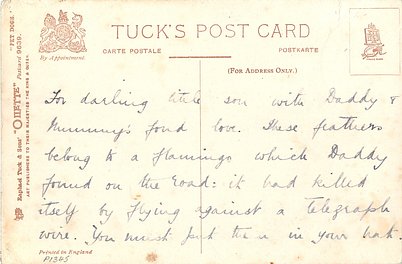 TUCK'S POST CARD
CARTE POSTALE
POSTKARTE
By Appointment.
(FOR ADDRESS ONLY.)
"PET DOGS."
Raphael Tuck & Sons' "OILETTE" Postcard 9539.
ART PUBLISHERS TO THEIR MAJESTIES THE KING & QUEEN
For darling little son with Daddy &
Mummy's fond love. These feathers
belong to a flamingo which Daddy
found on the road: it had killed
itself by flying against a telegraph
wire. You must put them in your hat.
Printed in England
P1345